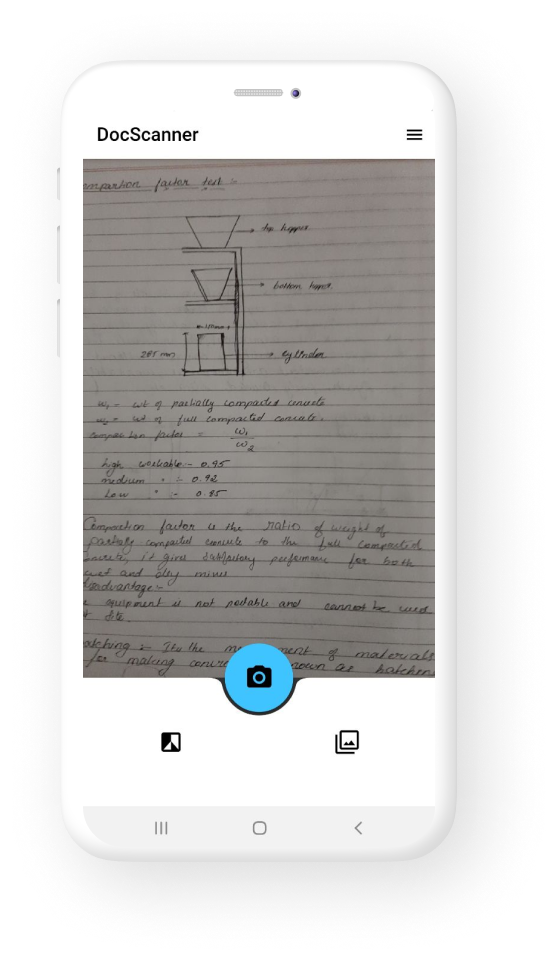 DocScanner
ompaction factor test :-
top hopper
bottom hopper
285 mm
cylinder
w₁ = wt of partially compacted concrete
w₂ = wt of full compacted concrete.
compaction factor = w₁/w₂
high workable :- 0.95
medium " :- 0.92
Low " :- 0.85
Compaction factor is the ratio of weight of
partially compacted concrete to the full compacted
it give satisfactory performance for both
wet and dry
equipment is not portable and cannot be used
Site.
atching :- Its the of materials
for making known as batchin